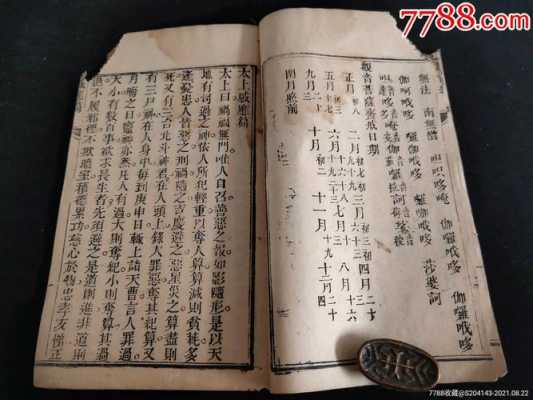 7788.com
中国收藏热线
無法 南無僧
伽囉哦哆
莎婆訶
觀音菩薩齋戒日期
正月初八
三月
四月二十
五月
六月
七月十三
八月十六
九月
十月初二
十一月十九
十二月
閏月照前
太上感應篇
太上曰禍福無門唯人自召善惡之報如影隨形是以天
地有司過之神依人所犯輕重以奪人算算減則貧耗多
逢憂患人皆惡之刑禍隨之吉慶避之惡星災之算盡則
死又有三台北斗神君在人頭上錄人罪惡奪其紀算又
有三尸神在人身中每到庚申日輒上詣天曹言人罪過
月晦之日竈神亦然凡人有過大則奪紀小則奪算其過
大小有數百事欲求長生者先須避之是道則進非道則
退不履邪徑不欺暗室積德累功慈心於物忠孝友悌正
7788收藏@S204143-2021.08.22